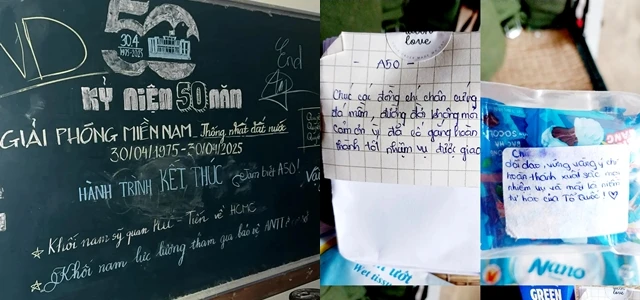 VD
50
30.4
1975-2025
End
KỶ NIỆM 50 NĂM
GIẢI PHÓNG MIỀN NAM Thống nhất đất nước
30/04/1975-30/04/2025
HÀNH TRÌNH KẾT THÚC
Tạm biệt A50!
Khối nam sỹ quan - Tiến về HCMC
Khối nam lực lượng tham gia bảo vệ
love
- A50 -
Chúc các đồng chí chân cứng
đá mềm, đường đời không mỏi
Cảm ơn vì đã cố gắng hoàn
thành tốt nhiệm vụ được giao
ướt
Wet tissue
Chúc
dồi dào, vững vàng ý chí
hoàn thành xuất sắc mọi
nhiệm vụ và mãi là niềm
tự hào của Tổ Quốc!
Nano
GREEN
love